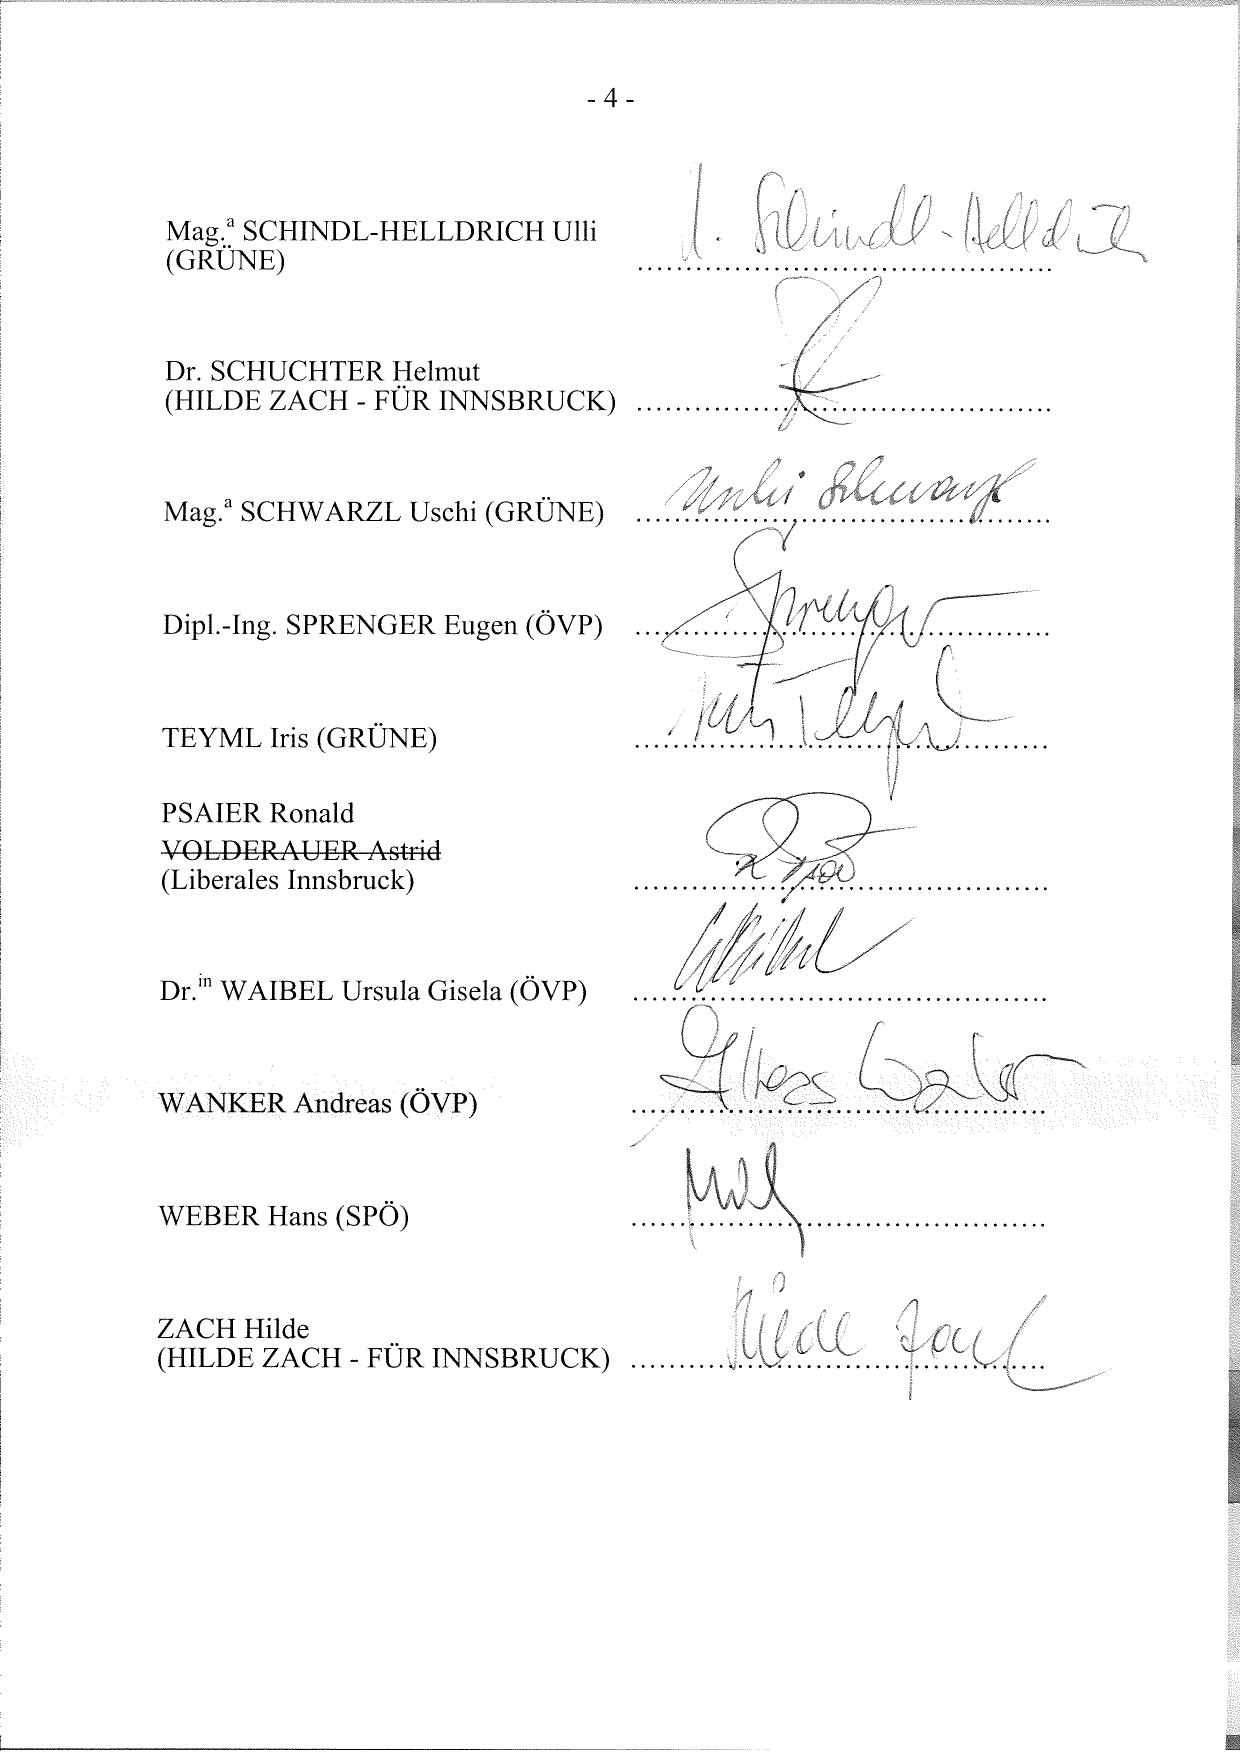 - 4 -
Mag.ª SCHINDL-HELLDRICH Ulli
(GRÜNE) ..........................................
U. Schindl-Helldrich
Dr. SCHUCHTER Helmut
(HILDE ZACH - FÜR INNSBRUCK) ..........................................
Mag.ª SCHWARZL Uschi (GRÜNE) ..........................................
Uschi Schwarzl
Dipl.-Ing. SPRENGER Eugen (ÖVP) ..........................................
Sprenger
TEYML Iris (GRÜNE) ..........................................
Iris Teyml
PSAIER Ronald
VOLDERAUER Astrid
(Liberales Innsbruck) ..........................................
Dr.ⁱⁿ WAIBEL Ursula Gisela (ÖVP) ..........................................
Waibel
WANKER Andreas (ÖVP) ..........................................
WEBER Hans (SPÖ) ..........................................
ZACH Hilde
(HILDE ZACH - FÜR INNSBRUCK) ..........................................
Hilde Zach